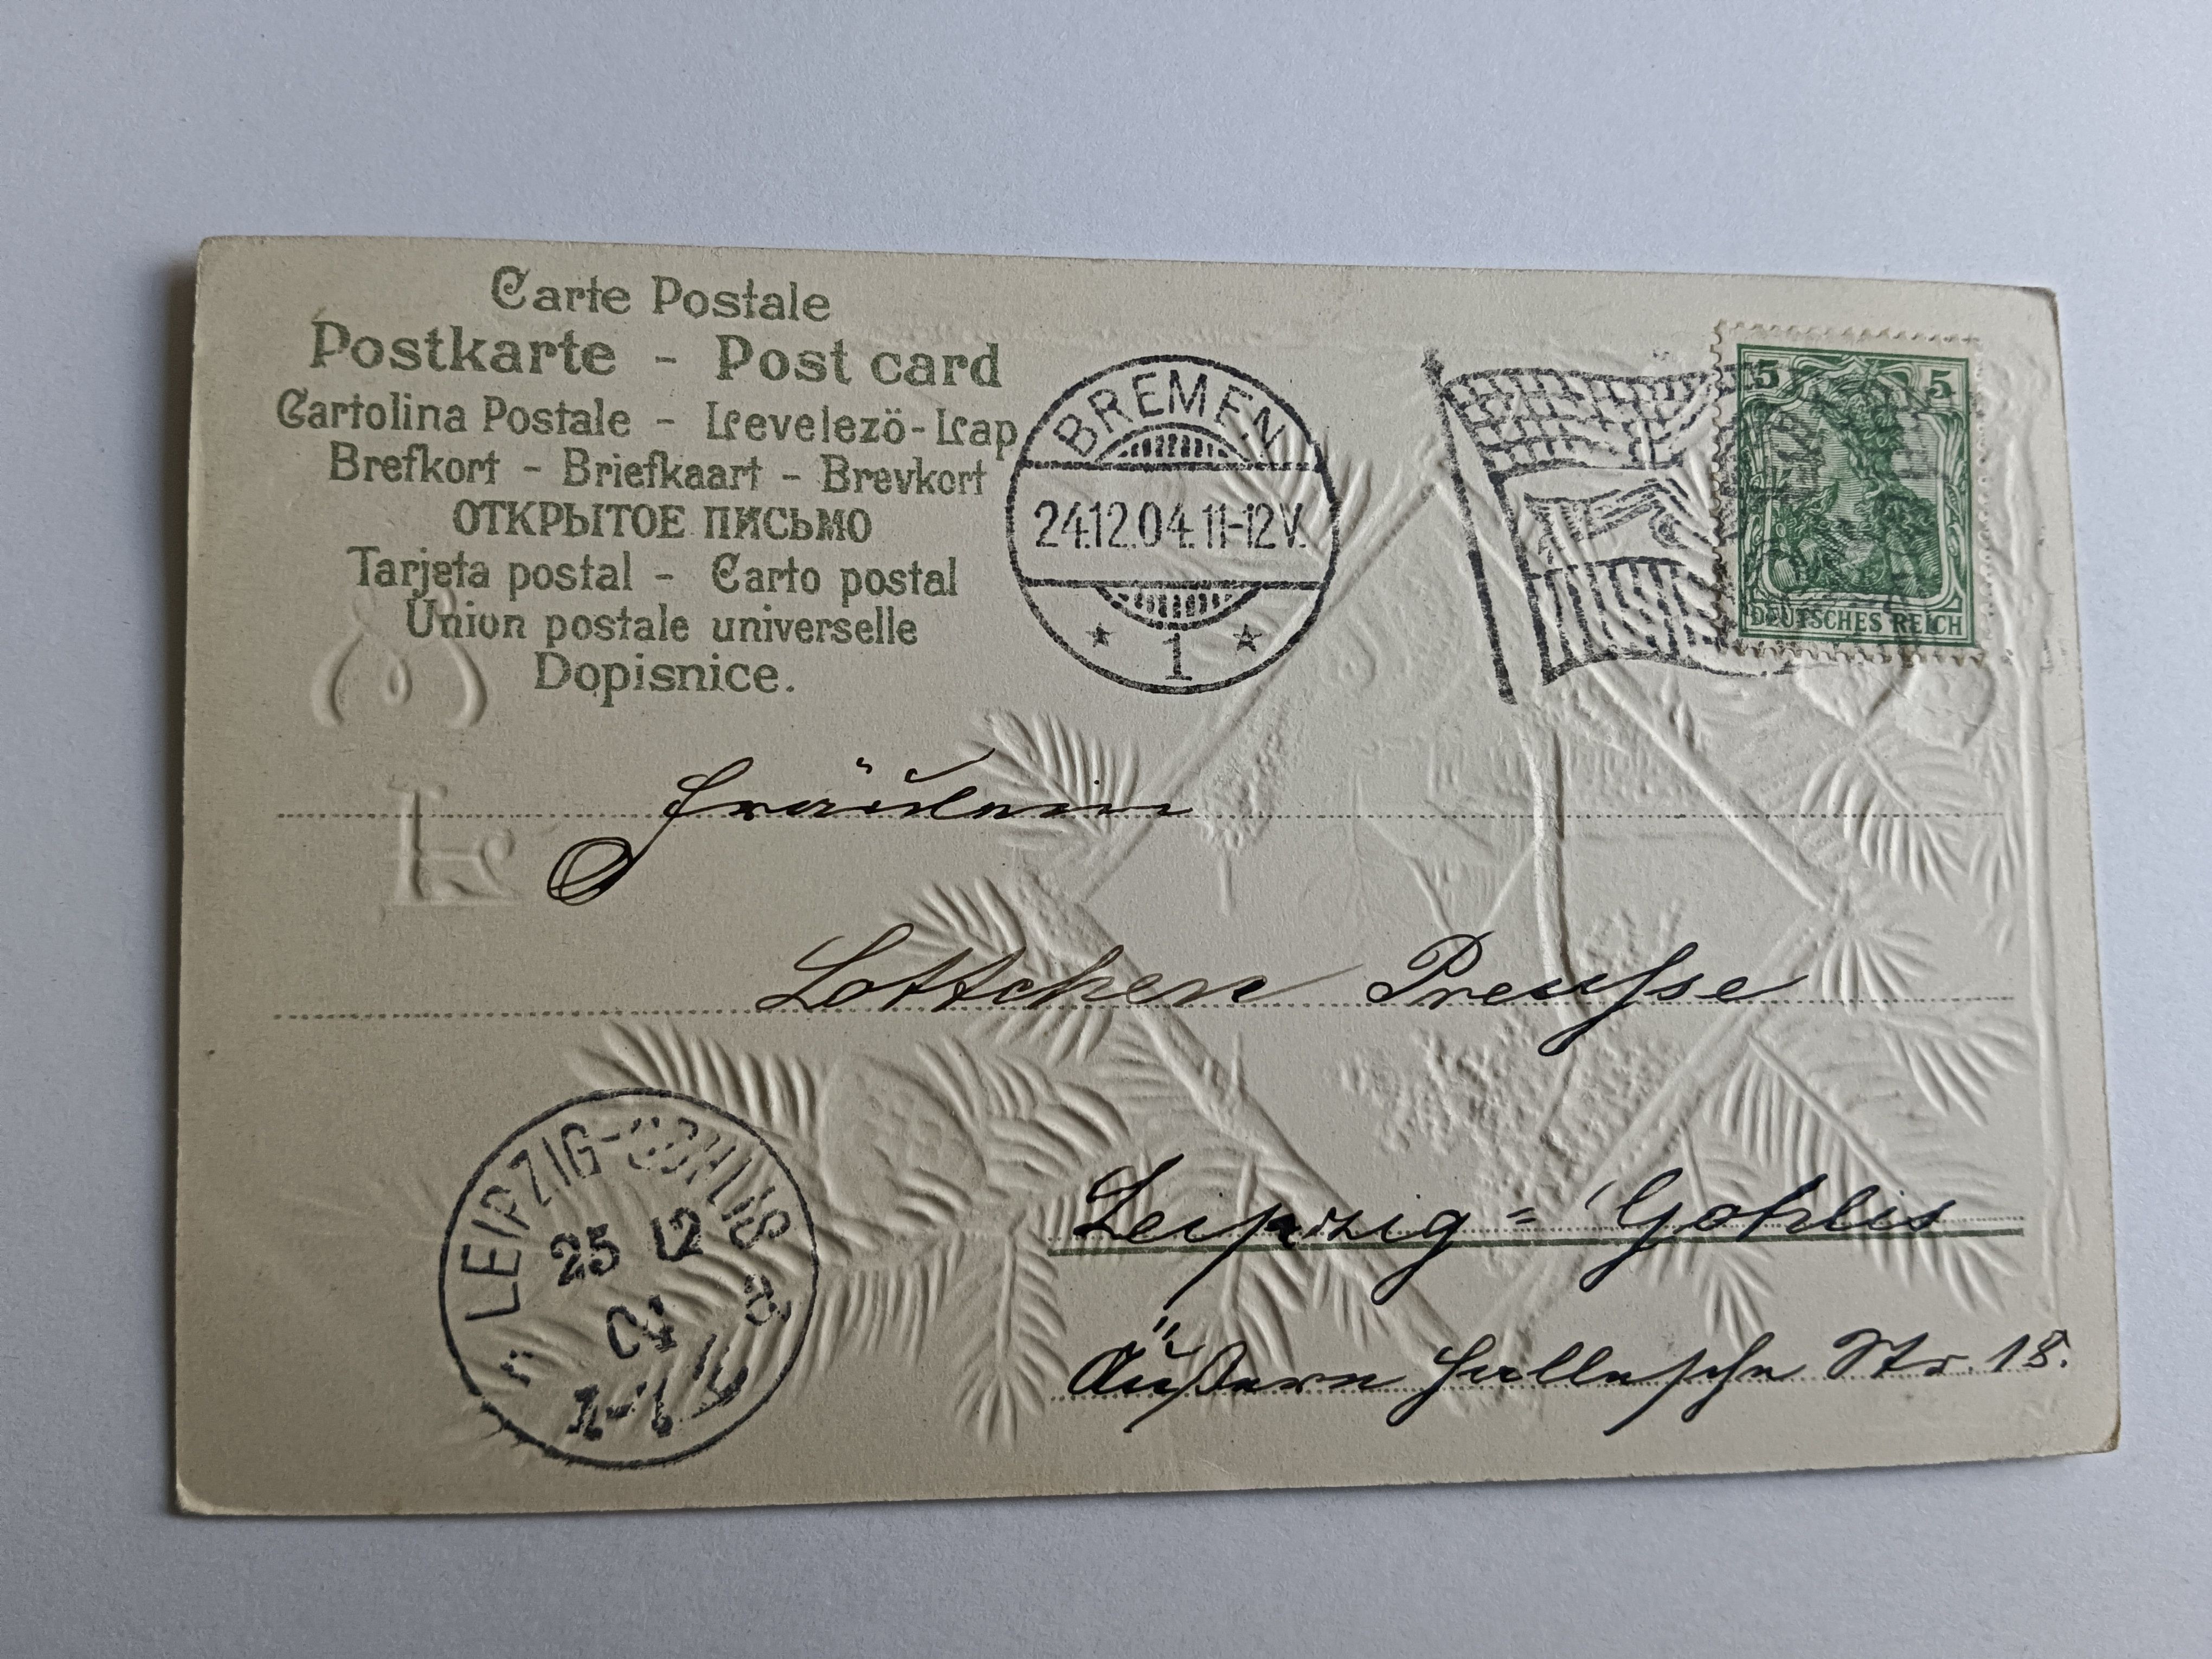 Carte Postale
Postkarte - Post card
Cartolina Postale - Levelezö-Lap
Brefkort - Briefkaart - Brevkort
ОТКРЫТОЕ ПИСЬМО
Tarjeta postal - Carto postal
Union postale universelle
Dopisnice.
BREMEN
24.12.04. 11-12V.
* 1 *
5 5
DEUTSCHES REICH
Fräulein
Lottchen Preusse
LEIPZIG-GOHLIS
25 12
04
Leipzig = Gohlis
Äußere Hallesche Str. 18.